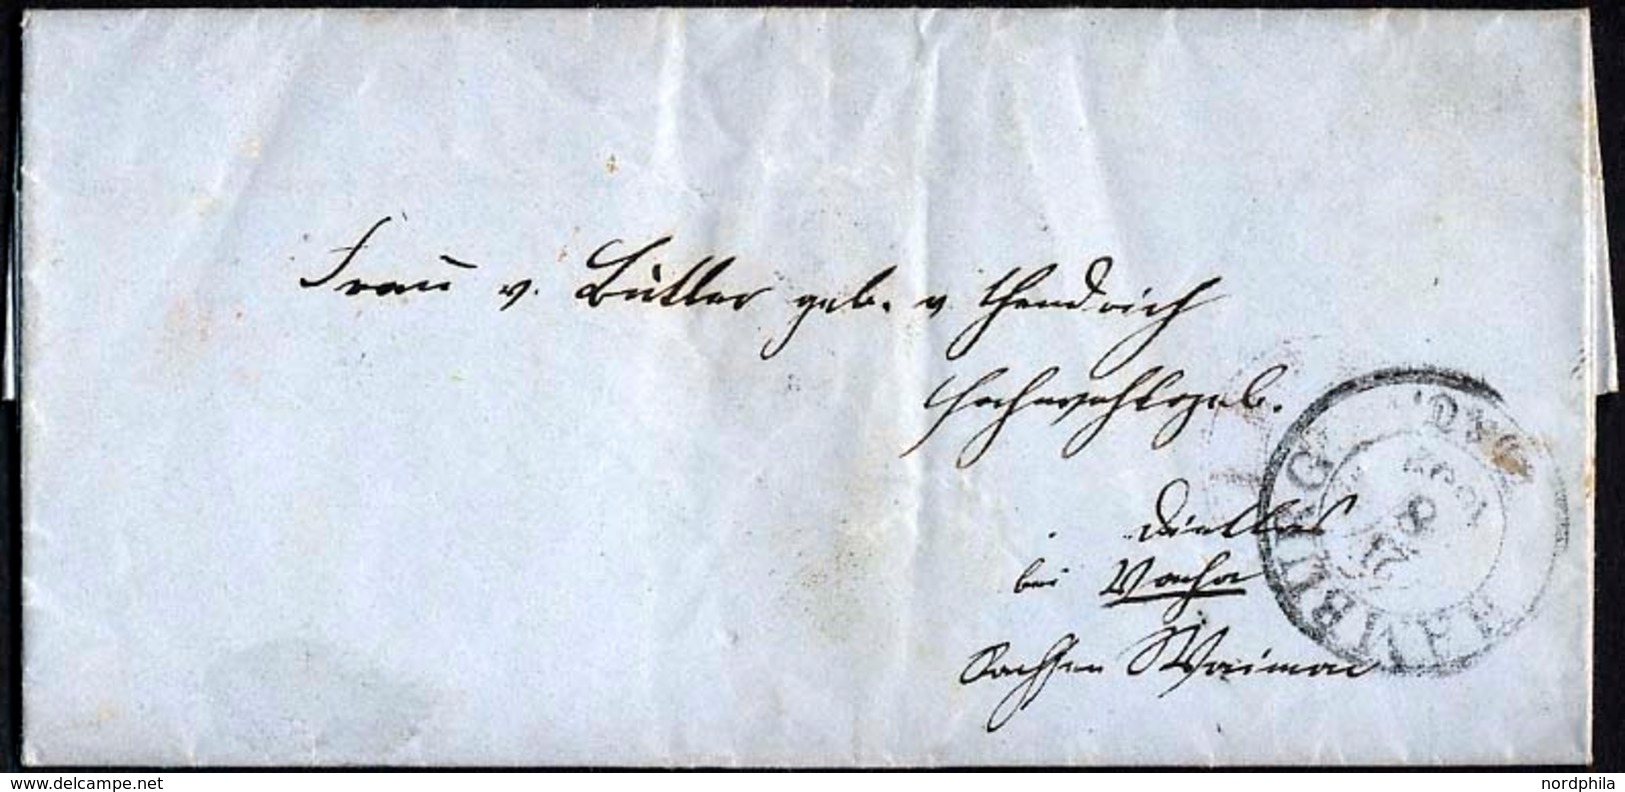 Frau v. Büttler geb. v. Hendrich
Hochwohlgeb.
Dietlas
bei Vacha
Sachsen Weimar
HAMBURG
8
delcampe.net
nordphila